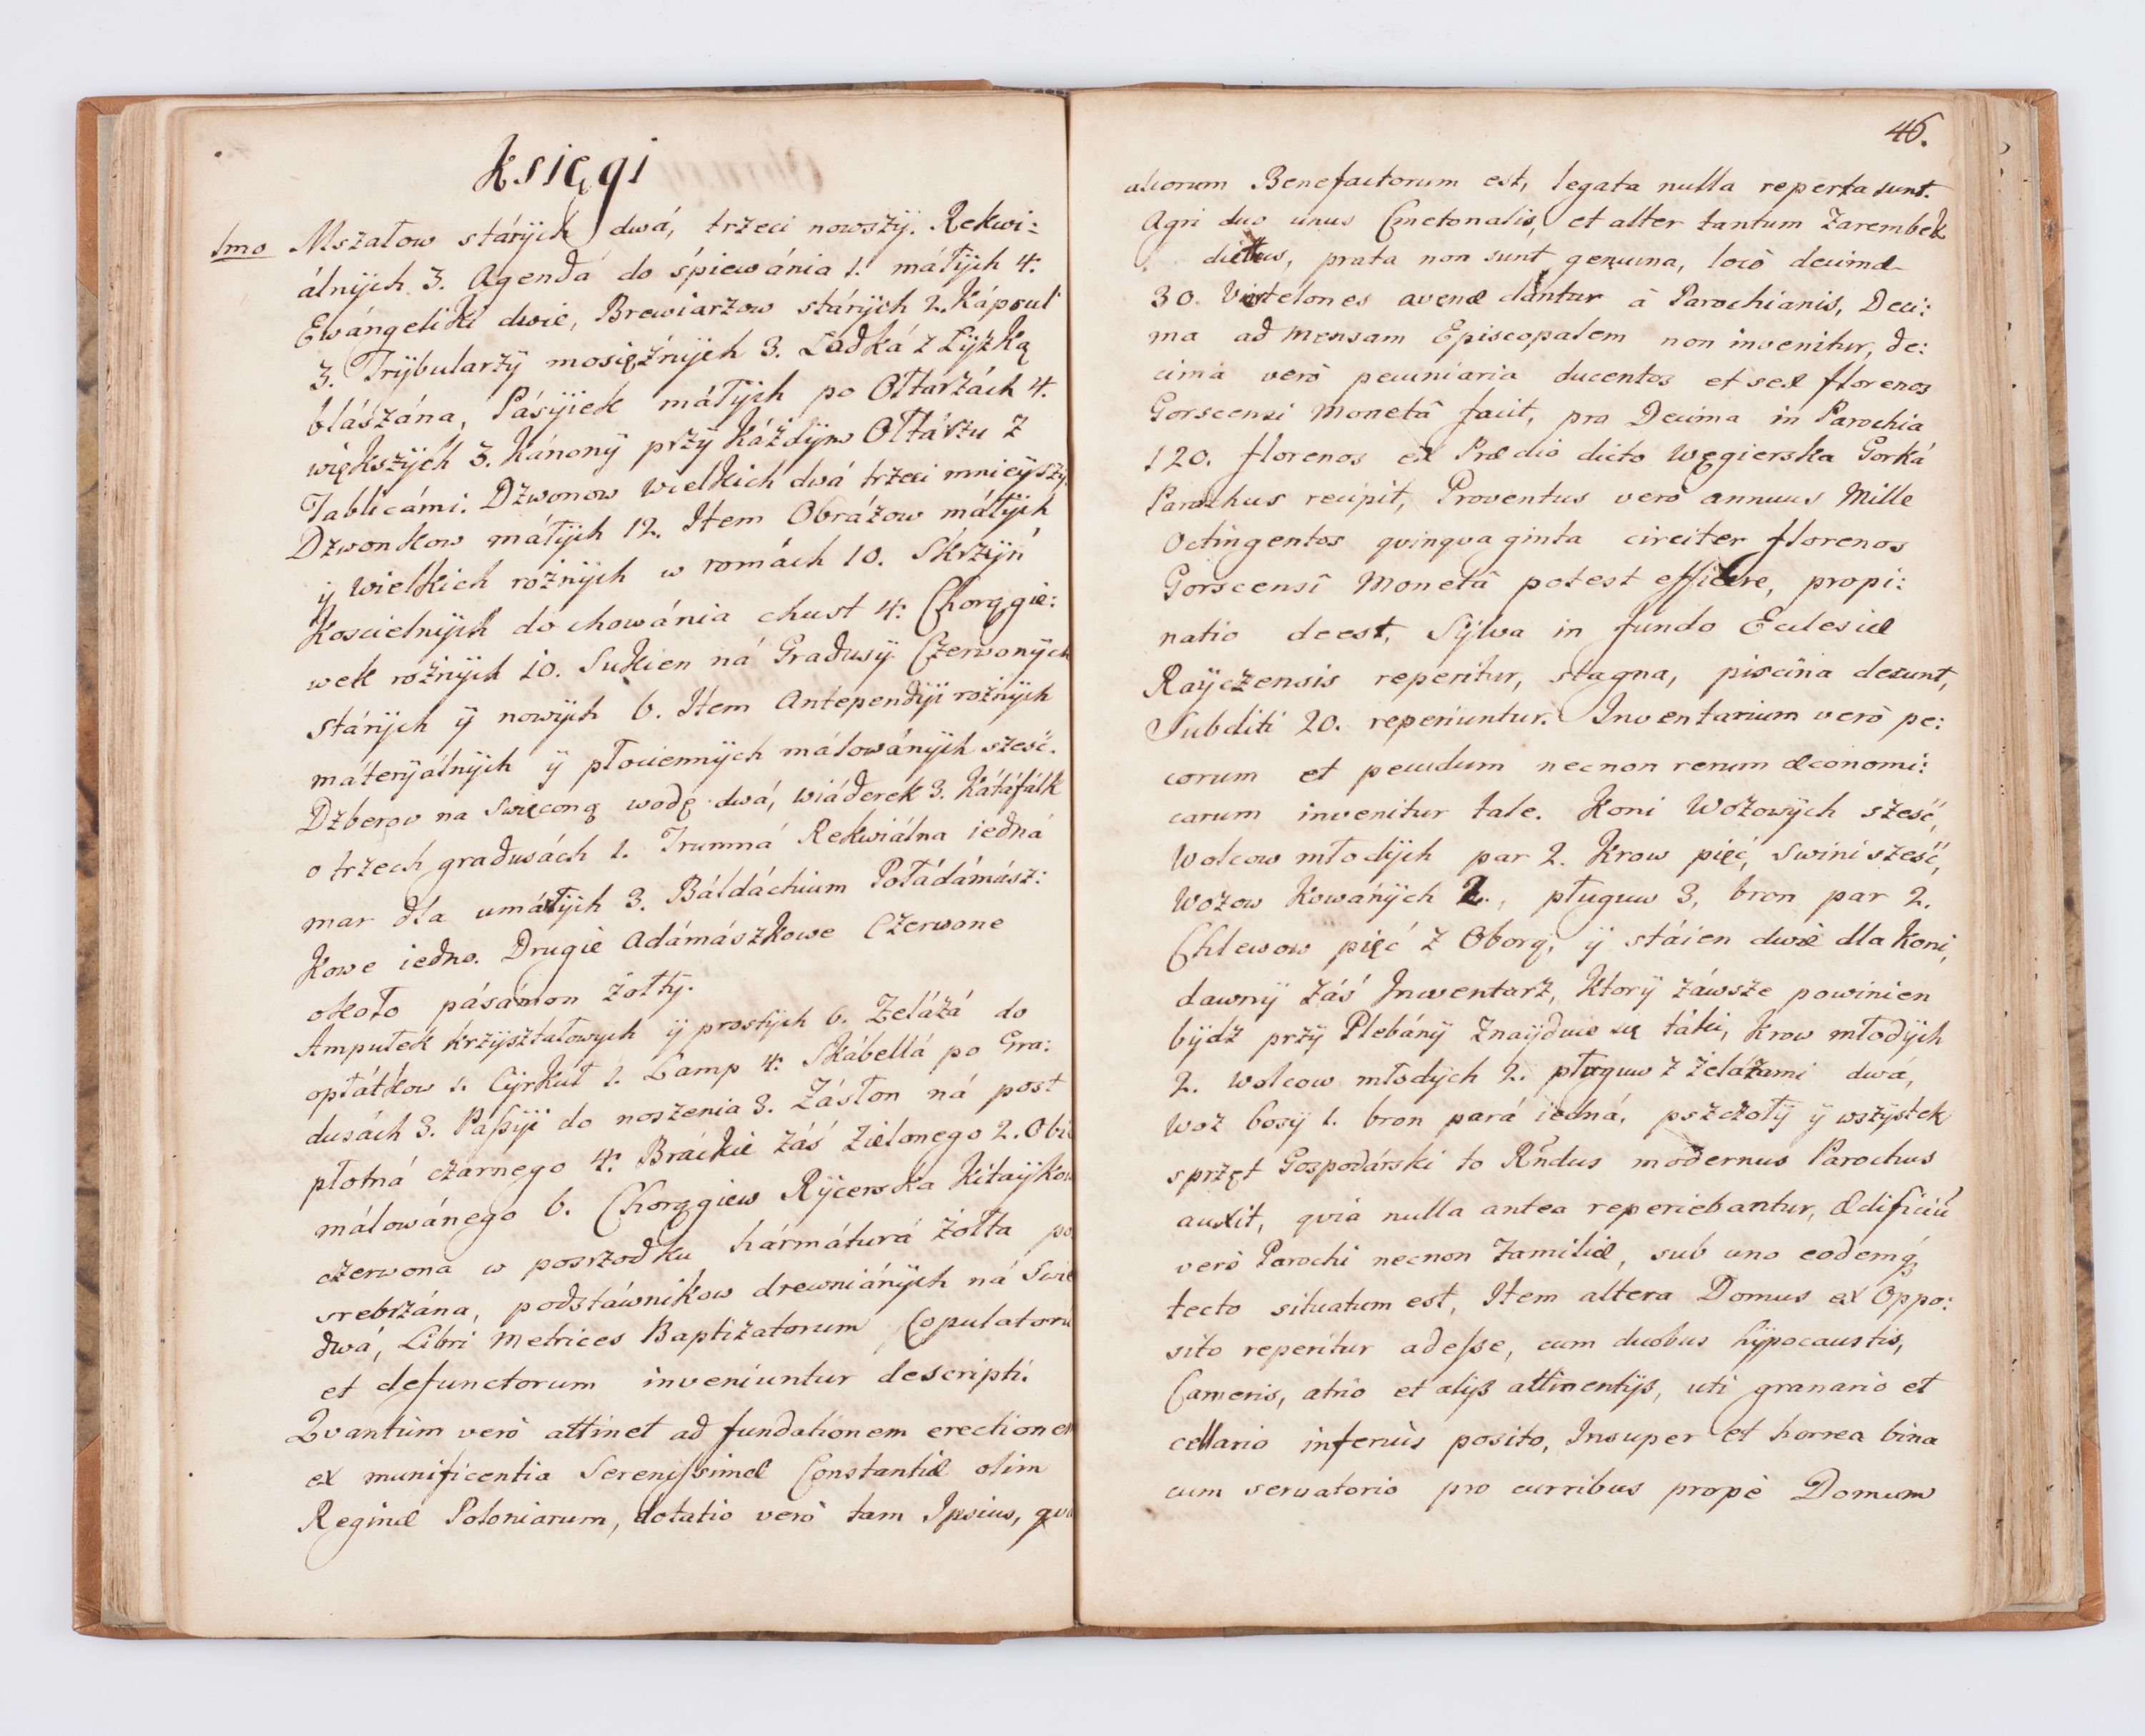 Księgi
1mo Mszałow stárÿch dwá, trzeci nowszÿ. Rekwi:
álnÿch 3. Agenda do śpiewánia 1. máłÿch 4.
Ewángeliki dwie, Brewiarzow stárÿch 2. Kápsul
3. Trÿbularzÿ mosiężnÿch 3. Ladká z Lÿzką
blászána, Pásÿiek máłÿch po Ołtarzách 4.
większÿch 3. Kánonÿ przÿ káżdÿm Ołtárzu z
Tablicámi. Dzwonow wielkich dwá trzeci mnieÿszÿ.
Dzwonkow máłÿch 12. Item Obrázow máłÿch
ÿ wielkich rożnÿch w romách 10. Skrzÿń
Koscielnÿch do chowánia chust 4: Chorągie:
wek rożnÿch 10. Sukien ná Gradusÿ Czerwonÿch
stárÿch ÿ nowÿch 6. Item Antependÿi rożnÿch
máterÿálnÿch ÿ płociennÿch málowánÿch szesć.
Dzberow na Swięconą wodę dwá, wiáderek 3. Kátáfálk
o trzech gradusách 1. Trumná Rekwiálna iedná
mar dla umáłÿch 3. Báldáchium Połádámász:
kowe iedno. Drugie Adámászkowe Czerwone
około pásámon żołtÿ.
Ampułek krzÿształowych ÿ prostÿch 6. Zelázá do
opłátkow 1. Cÿrkuł 1. Lamp 4: Skábellá po Gra:
dusách 3. Paſsÿi do noszenia 3. Zásłon ná post
płotná czarnego 4: Bráckie záś zielonego 2. Obi
málowánego 6. Chorągiew Rÿcerska Kitaÿkow
czerwona w poszrodku hármáturá żołta po
srebrzána, podstáwnikow drewniánÿch ná Swie
dwá, Libri Metrices Baptizatorum Copulatoru
et defunctorum inveniuntur descripti.
Qvantùm verò attinet ad fundationem erectionem
ex munificentia Sereniſsimæ Constantiæ olim
Reginæ Poloniarum, dotatio verò tam Ipsius, qva
46.
aliorum Benefactorum est, legata nulla reperta sunt.
Agri duo unus Cmetonalis, et alter tantum Zarembek
dictus, prata non sunt genuina, locò decimæ
30. Viertelones avenæ dantur à Parochianis, Deci:
ma ad Mensam Episcopalem non invenitur, de:
cima verò pecuniaria ducentos et sex florenos
Gorscensi Monetâ facit, pro Decima in Parochia
120. florenos ex Prædio dicto Węgierska Gorká
Parochus recipit, Proventus verò annuus Mille
Octingentos qvinqvaginta circiter florenos
Gorscensî Monetâ potest efficere, propi:
natio deest, Sÿlva in fundo Ecclesiæ
Raÿczensis reperitur, stagna, piscina desunt,
Subditi 20. reperiuntur. Inventarium verò pe:
corum et pecudum necnon rerum æconomi:
carum invenitur tale. Koni Wozowÿch szesć,
Wolcow młodÿch par 2. Krow pięć, Swini szesć,
Wozow Kowánÿch 2., pługuw 3, bron par 2.
Chlewow pięć z Oborą, ÿ stáien dwie dla koni,
dawnÿ záś Inwentarz, Ktorÿ záwsze powinien
bÿdź przÿ Plebánÿ znaÿduie się táki, Krow młodÿch
2. wolcow młodÿch 2. pługuw z żelázami dwá,
woz bosÿ 1. bron pará iedná. pszczołÿ ÿ wszÿstek
sprzęt Gospodárski to Rndus modernus Parochus
auxit, qvia nulla antea reperiebantur, Ædificiũ
verò Parochi necnon Familiæ, sub uno eodemq́;
tecto situatum est, Item altera Domus ex Oppo:
sito reperitur adeſse, cum duobus hÿpocaustis,
Cameris, atrio et alijs attinentijs, uti granario et
cellario inferiùs posito, Insuper et horrea bina
cum servatorio pro curribus propè Domum